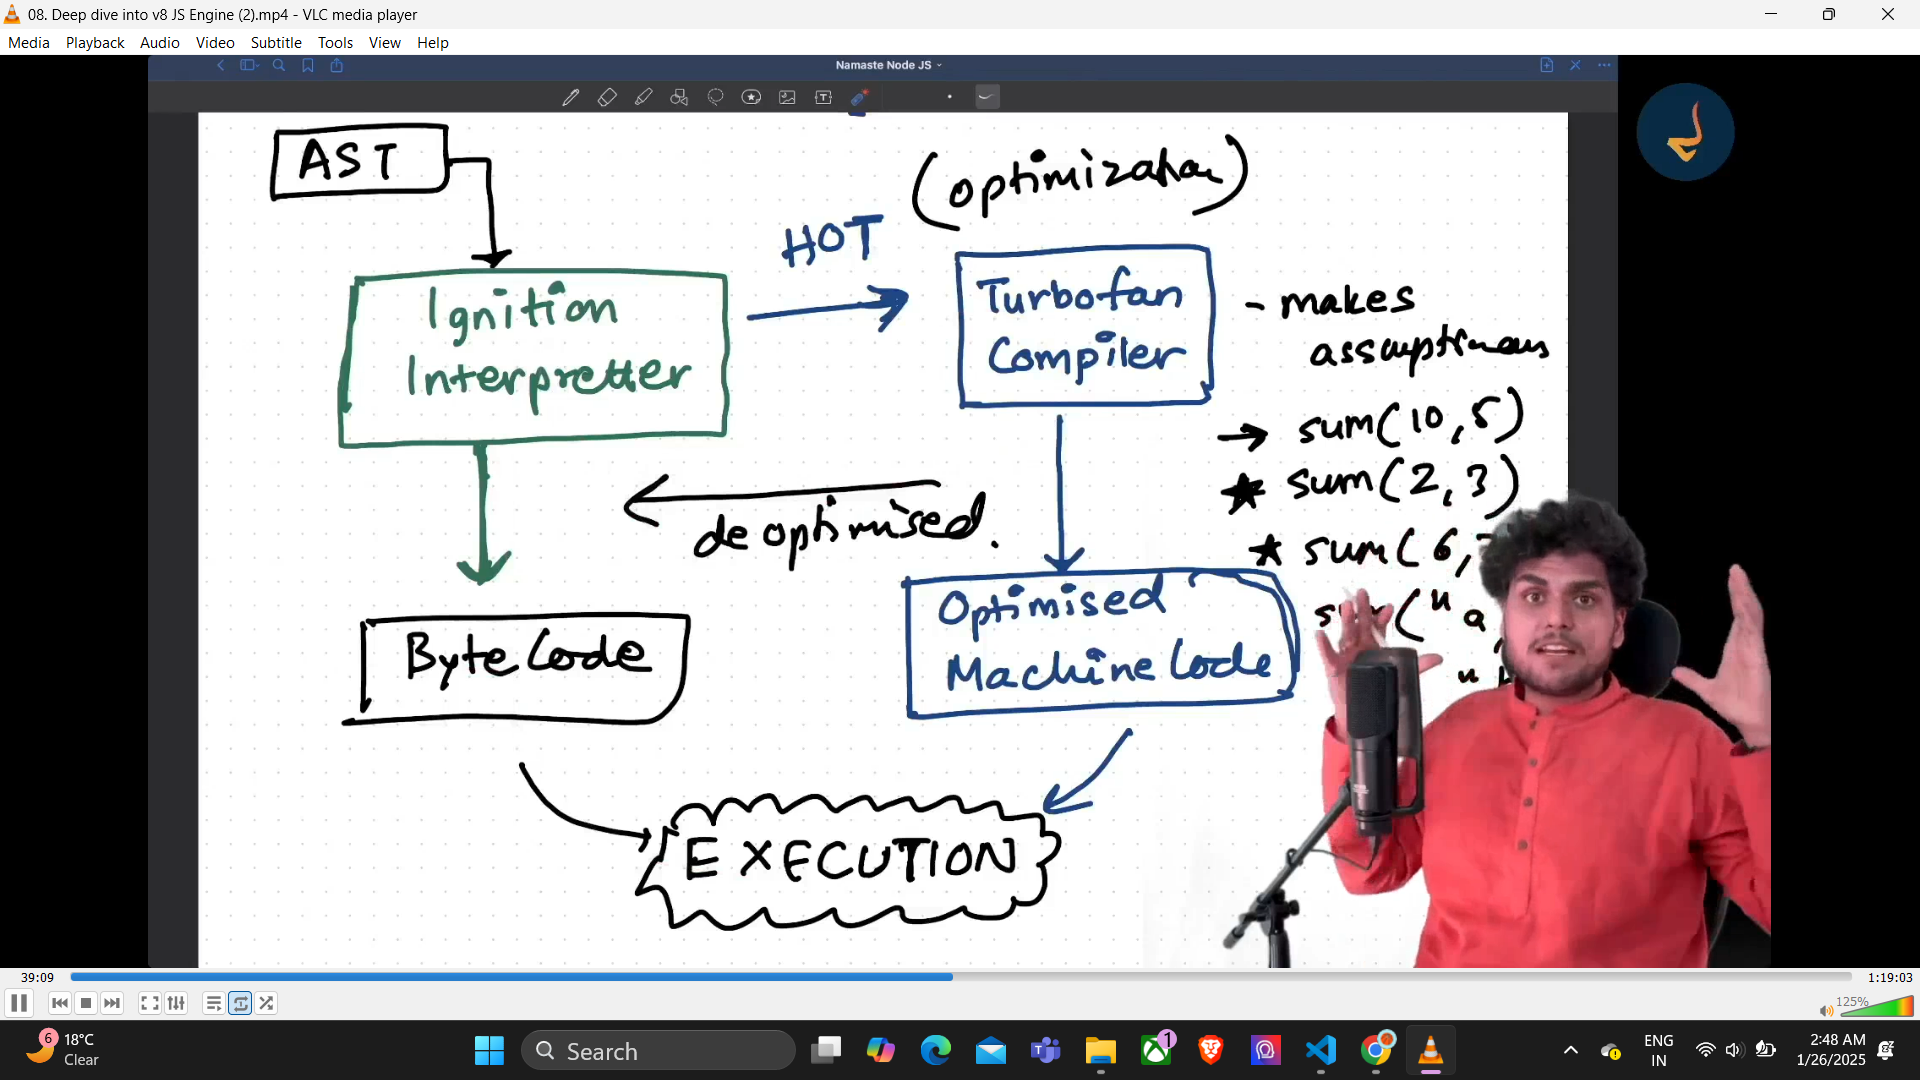 08. Deep dive into v8 JS Engine (2).mp4 - VLC media player
Media Playback Audio Video Subtitle Tools View Help
Namaste Node JS
AST
(optimization)
HOT
Ignition
Interpretter
Turbofan
Compiler
- makes
assumptions
→ sum(10,5)
★ sum(2,3)
★ sum(6,
sum("a
deoptimised.
Byte Code
Optimised
Machine Code
EXECUTION
39:09
1:19:03
125%
6
18°C
Clear
Search
1
ENG
IN
2:48 AM
1/26/2025